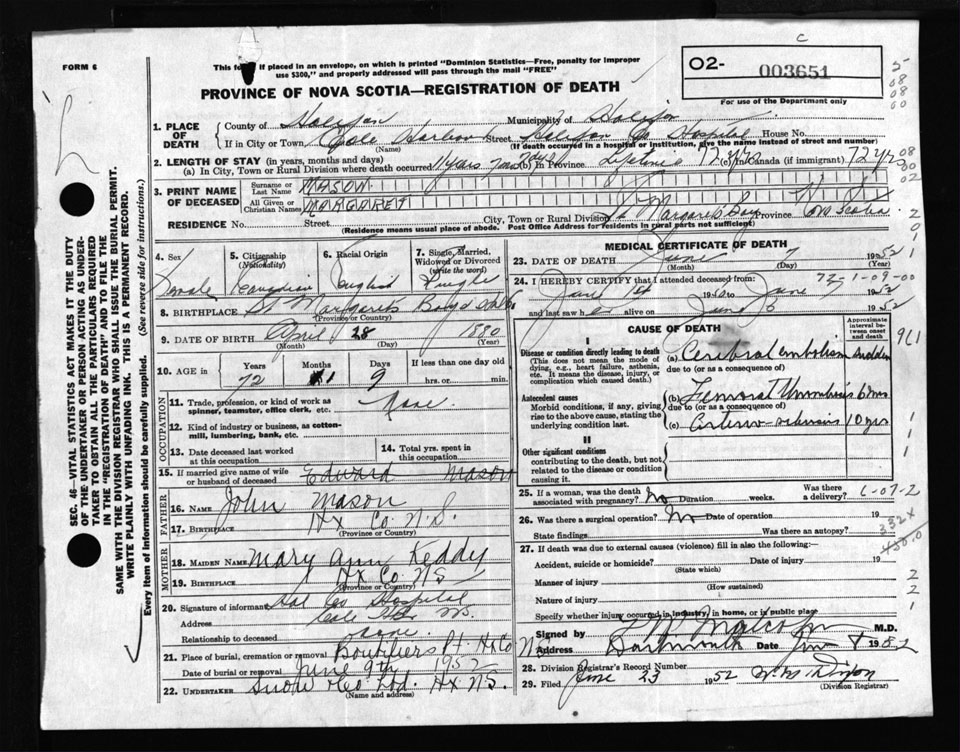 C
FORM 6
This form if placed in an envelope, on which is printed "Dominion Statistics—Free, penalty for improper
use $300," and properly addressed will pass through the mail "FREE"
O2- 003651
For use of the Department only
PROVINCE OF NOVA SCOTIA—REGISTRATION OF DEATH
1. PLACE OF DEATH
County of Halifax Municipality of Halifax
If in City or Town, Cole Harbour Street Halifax Co Hospital House No.
(Name) (If death occurred in a hospital or institution, give name instead of street and number)
2. LENGTH OF STAY (in years, months and days)
(a) In City, Town or Rural Division where death occurred 11 years 7 mos 7 dys (b) In Province Lifetime 72 yrs (c) in Canada (if immigrant) 72 yrs
3. PRINT NAME OF DECEASED
Surname or Last Name MASON
All Given or Christian Names MARGARET
RESIDENCE No. Street City, Town or Rural Division St Margarets Bay Province Nova Scotia
(Residence means usual place of abode. Post Office Address for residents in rural parts not sufficient)
4. Sex Female
5. Citizenship (Nationality) Canadian
6. Racial Origin English
7. Single, Married, Widowed or Divorced (write the word) Single
8. BIRTHPLACE St Margarets Bay
(Province or Country)
9. DATE OF BIRTH April 28 1880
(Month) (Day) (Year)
10. AGE in Years Months Days If less than one day
72 1 9 hrs. or min.
OCCUPATION
11. Trade, profession, or kind of work as spinner, teamster, office clerk, etc. None
12. Kind of industry or business, as cotton-mill, lumbering, bank, etc.
13. Date deceased last worked at this occupation
14. Total yrs. spent in this occupation
15. If married give name of wife or husband of deceased Edward Mason
FATHER
16. NAME John Mason
17. BIRTHPLACE Hx Co. N.S.
(Province or Country)
MOTHER
18. MAIDEN NAME Mary Ann Keddy
19. BIRTHPLACE Hx Co NS
(Province or Country)
20. Signature of informant Hal Co Hospital
Address Cole Hbr
Relationship to deceased none.
21. Place of burial, cremation or removal Boutiliers Pt. Hx Co
Date of burial or removal June 9th 1952
22. UNDERTAKER Snow & Co Ltd. Hx N.S.
(Name and address)
MEDICAL CERTIFICATE OF DEATH
23. DATE OF DEATH June 7 1952
(Month) (Day)
24. I HEREBY CERTIFY that I attended deceased from: 72-1-09-00
June 1950 to June 1952
and last saw her alive on June 1952
CAUSE OF DEATH
Approximate interval between onset and death
I
Disease or condition directly leading to death
(This does not mean the mode of dying, e.g., heart failure, asthenia, etc. It means the disease, injury, or complication which caused death.)
(a) Cerebral embolism sudden
due to (or as a consequence of)
Antecedent causes
Morbid conditions, if any, giving rise to the above cause, stating the underlying condition last.
(b) Femoral Thrombosis 6 mos
due to (or as a consequence of)
(c) Arterio-sclerosis 10 yrs
II
Other significant conditions
contributing to the death, but not related to the disease or condition causing it.
25. If a woman, was the death associated with pregnancy? No Duration weeks. Was there a delivery?
26. Was there a surgical operation? No Date of operation 19
State findings Was there an autopsy?
27. If death was due to external causes (violence) fill in also the following:—
Accident, suicide or homicide? Date of injury 19
(State which)
Manner of injury
(How sustained)
Nature of injury
Specify whether injury occurred in industry, in home, or in public place
Signed by Malcolm M.D.
Address Dartmouth Date
28. Division Registrar's Record Number
29. Filed June 23 1952 Dixon
(Division Registrar)
SEC. 46—VITAL STATISTICS ACT MAKES IT THE DUTY
OF THE UNDERTAKER OR PERSON ACTING AS UNDER-
TAKER TO OBTAIN ALL THE PARTICULARS REQUIRED
IN THE "REGISTRATION OF DEATH" AND TO FILE THE
SAME WITH THE DIVISION REGISTRAR WHO SHALL ISSUE THE BURIAL PERMIT.
WRITE PLAINLY WITH UNFADING INK. THIS IS A PERMANENT RECORD.
Every item of information should be carefully supplied. (See reverse side for instructions.)